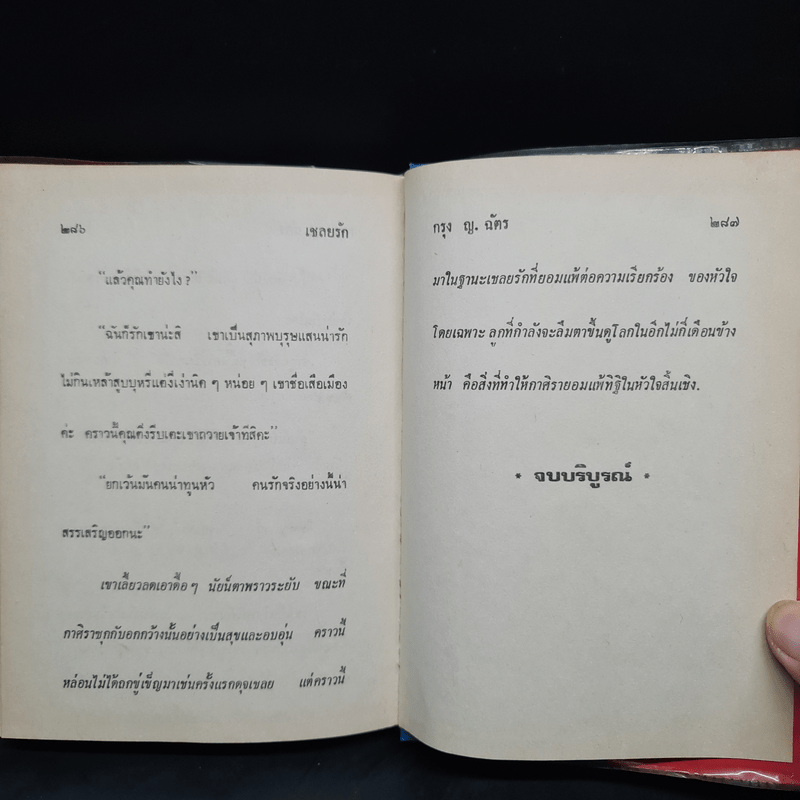 ๒๘๖ เชลยรัก
"แล้วคุณทำยังไง?"
"ฉันก็รักเขาน่ะสิ เขาเป็นสุภาพบุรุษแสนน่ารัก
ไม่กินเหล้าสูบบุหรี่แค่งี่เง่านิด ๆ หน่อย ๆ เขาชื่อเสือเมือง
ค่ะ คราวนี้คุณคงรีบเตะเขาถวายเจ้าที่สิคะ"
"ยกเว้นมันคนน่าทูนหัว คนรักจริงอย่างนี้น่า
สรรเสริญออกนะ"
เขาเลี้ยวลดเอาดื้อ ๆ นัยน์ตาพราวระยับ ขณะที่
กาศิราซุกกับอกกว้างนั้นอย่างเป็นสุขและอบอุ่น คราวนี้
หล่อนไม่ได้ถูกขู่เข็ญมาเช่นครั้งแรกดุจเชลย แต่คราวนี้
กรุง ญ. ฉัตร ๒๘๗
มาในฐานะเชลยรักที่ยอมแพ้ต่อความเรียกร้อง ของหัวใจ
โดยเฉพาะ ลูกที่กำลังจะลืมตาขึ้นดูโลกในอีกไม่กี่เดือนข้าง
หน้า คือสิ่งที่ทำให้กาศิรายอมแพ้ทิฐิในหัวใจสิ้นเชิง.
* จบบริบูรณ์ *